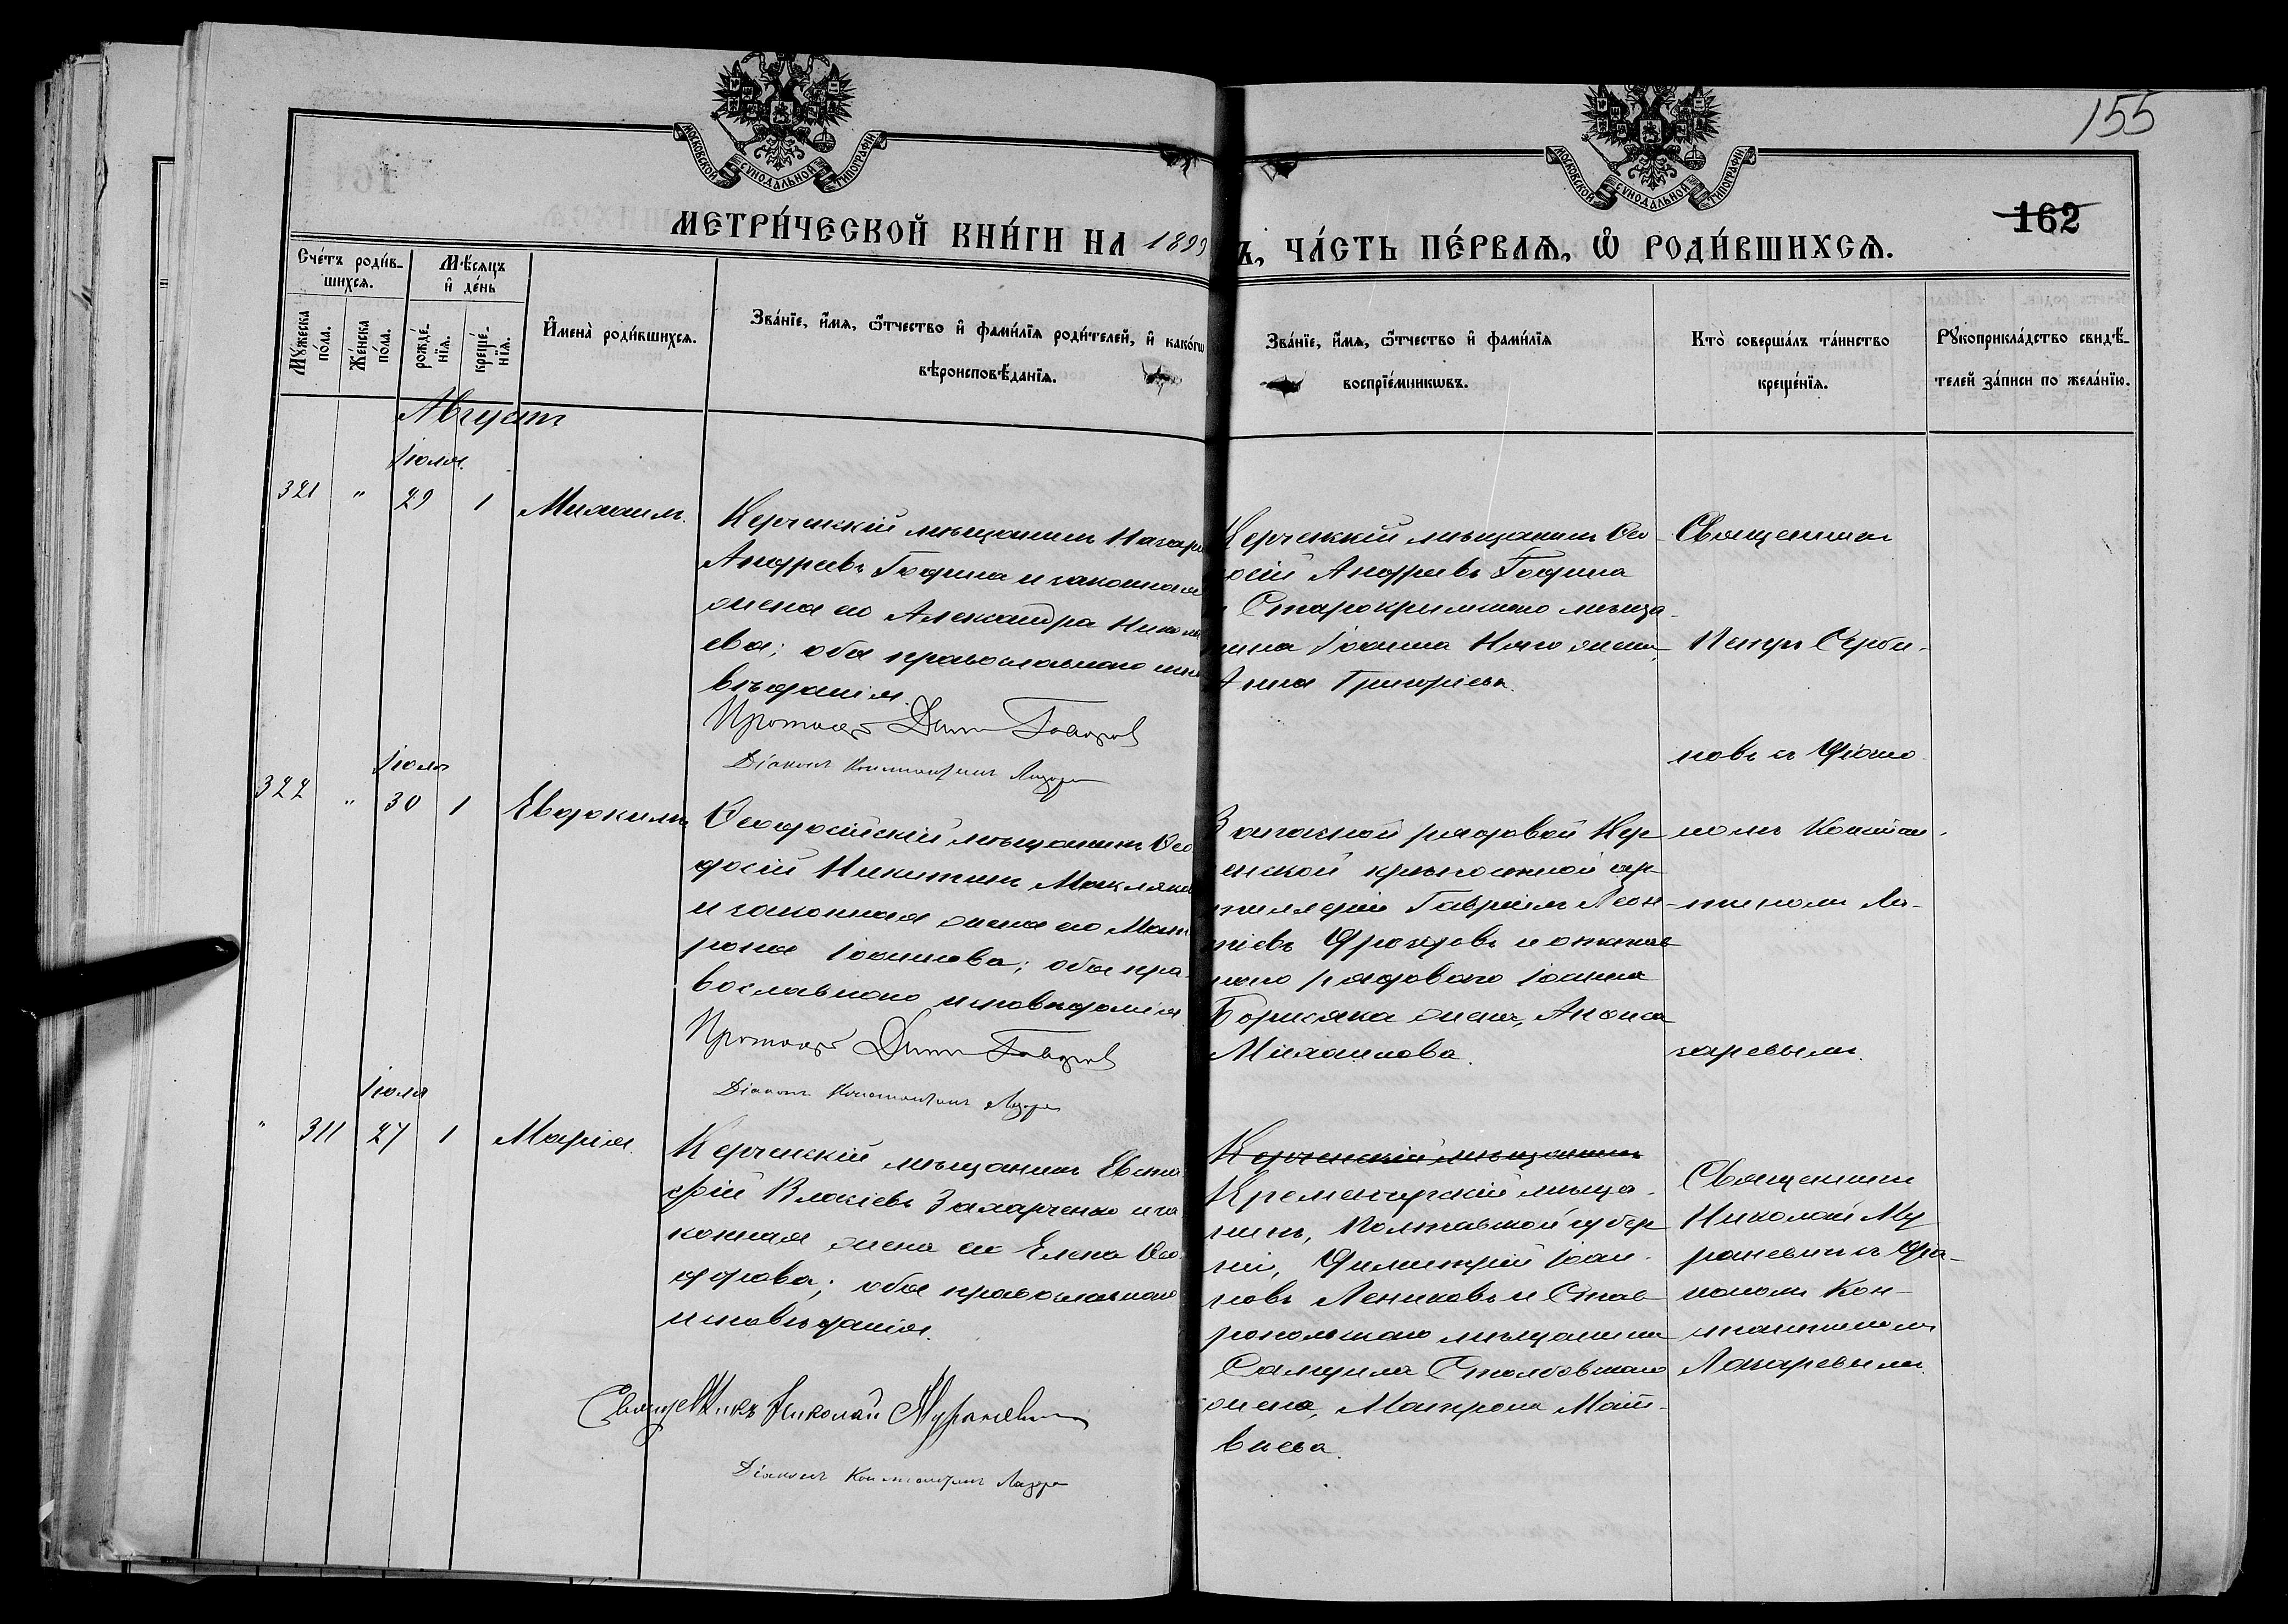 155
162
МОСКОВСКОЙ СѴНОДАЛЬНОЙ ТИПОГРАФІИ
МОСКОВСКОЙ СѴНОДАЛЬНОЙ ТИПОГРАФІИ
МЕТРИ́ЧЕСКОЙ КНИ́ГИ НА 1899
Ъ, ЧА́СТЬ ПЕ́РВАѦ, Ѡ҆ РОДИ́ВШИХСѦ.
Сче́тъ роди́в-
шихсѧ.
Мѣ́сѧцъ
и҆ де́нь
Мꙋ́жеска
по́ла.
Же́нска
по́ла.
рожде́-
нїѧ.
креще́-
нїѧ.
И҆мена̀ роди́вшихсѧ.
Зва́нїе, и҆́мѧ, ѻ҆́тчество и҆ фами́лїѧ роди́телей, и҆ како́гѡ
вѣроисповѣ́данїѧ.
Зва́нїе, и҆́мѧ, ѻ҆́тчество и҆ фами́лїѧ
воспрїе́мникѡвъ.
Кто̀ соверша́лъ та́инство
креще́нїѧ.
Рꙋкоприкла́дство свидѣ́-
телей за́писи по жела́нїю.
Августъ
Іюля.
321 " 29 1 Михаилъ.
Керченскій мѣщанинъ Назарі
Андреевъ Година и законная
жена его Александра Никола
ева; оба православнаго испо
вѣданія.
Протоіер Дим Говоров
Діаконъ Константинъ Лазаре
Керченскій мѣщанинъ Ѳео-
досій Андреевъ Година
и Старокрымскаго мѣща-
нина Іоанна жена,
Анна Григорьева.
Священникъ
Петръ Серби-
новъ съ діако-
номъ Констан-
тиномъ Ла-
заревымъ.
Іюля
322 " 30 1 Евдокимъ
Ѳеодосійскій мѣщанинъ Ѳео
досій Никитинъ Макляко
и законная жена его Мат
рона Іоаннова; оба пра-
вославнаго исповѣданія.
Протоіер Дим Говоров
Діаконъ Константинъ Лазаре
Запасной рядовой Кер
ченской крѣпостной ар-
тиллеріи Гавріилъ Леон-
тіевъ Дроздовъ и отстав
наго рядового Іоанна
Борисяка жена, Анисія
Михаилова.
Іюля
" 311 27 1 Марія.
Керченскій мѣщанинъ Евста-
фій Власіевъ Захарченко и за
конная жена его Елена Ѳео-
дорова; оба православнаго
исповѣданія.
Священникъ Николай Мураневич
Діаконъ Константинъ Лазаре
Керченскій мѣщанинъ
Кременчугскій мѣща-
нинъ, Полтавской губер
ніи, Димитрій Іоан-
новъ Лениковъ и Став
ропольскаго мѣщанина
Самуила Столбовскаго
жена, Матрона Мат-
вѣева.
Священникъ
Николай Му
раневичъ съ діа-
кономъ Кон-
стантиномъ
Лазаревымъ.